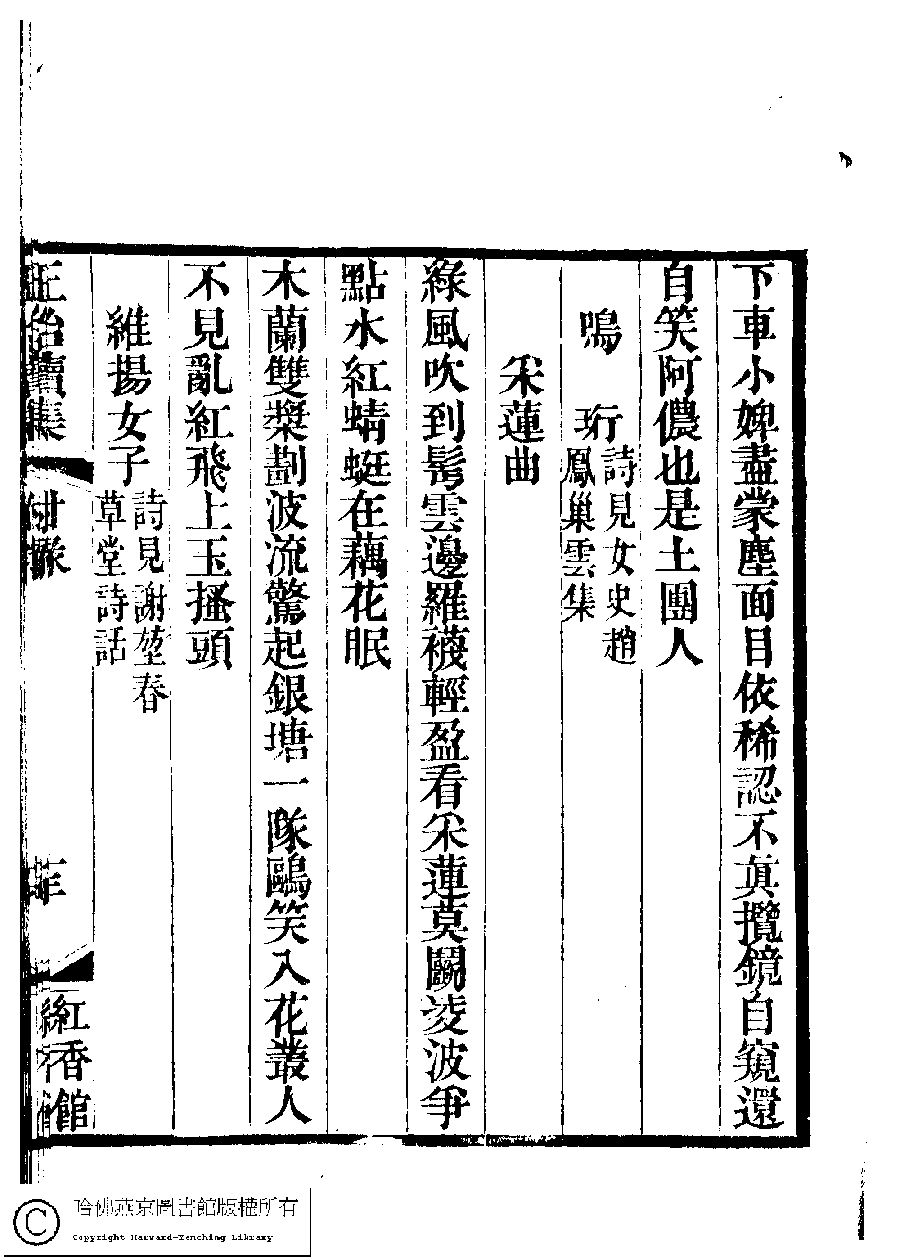 下車小婢盡蒙塵面目依稀認不眞攬鏡自窺還
自笑阿儂也是土團人
鳴珩詩見女史趙
鳳巢雲集
采蓮曲
綠風吹到鬂雲邊羅襪輕盈看采蓮莫鬭淩波爭
點水紅蜻蜓在藕花眠
木蘭雙槳劃波流驚起銀塘一隊鷗笑入花叢人
不見亂紅飛上玉搔頭
維揚女子詩見謝堃春
草堂詩話
正始續集 附錄
紅香館
哈佛燕京圖書館版權所有
Copyright Harvard-Yenching Library